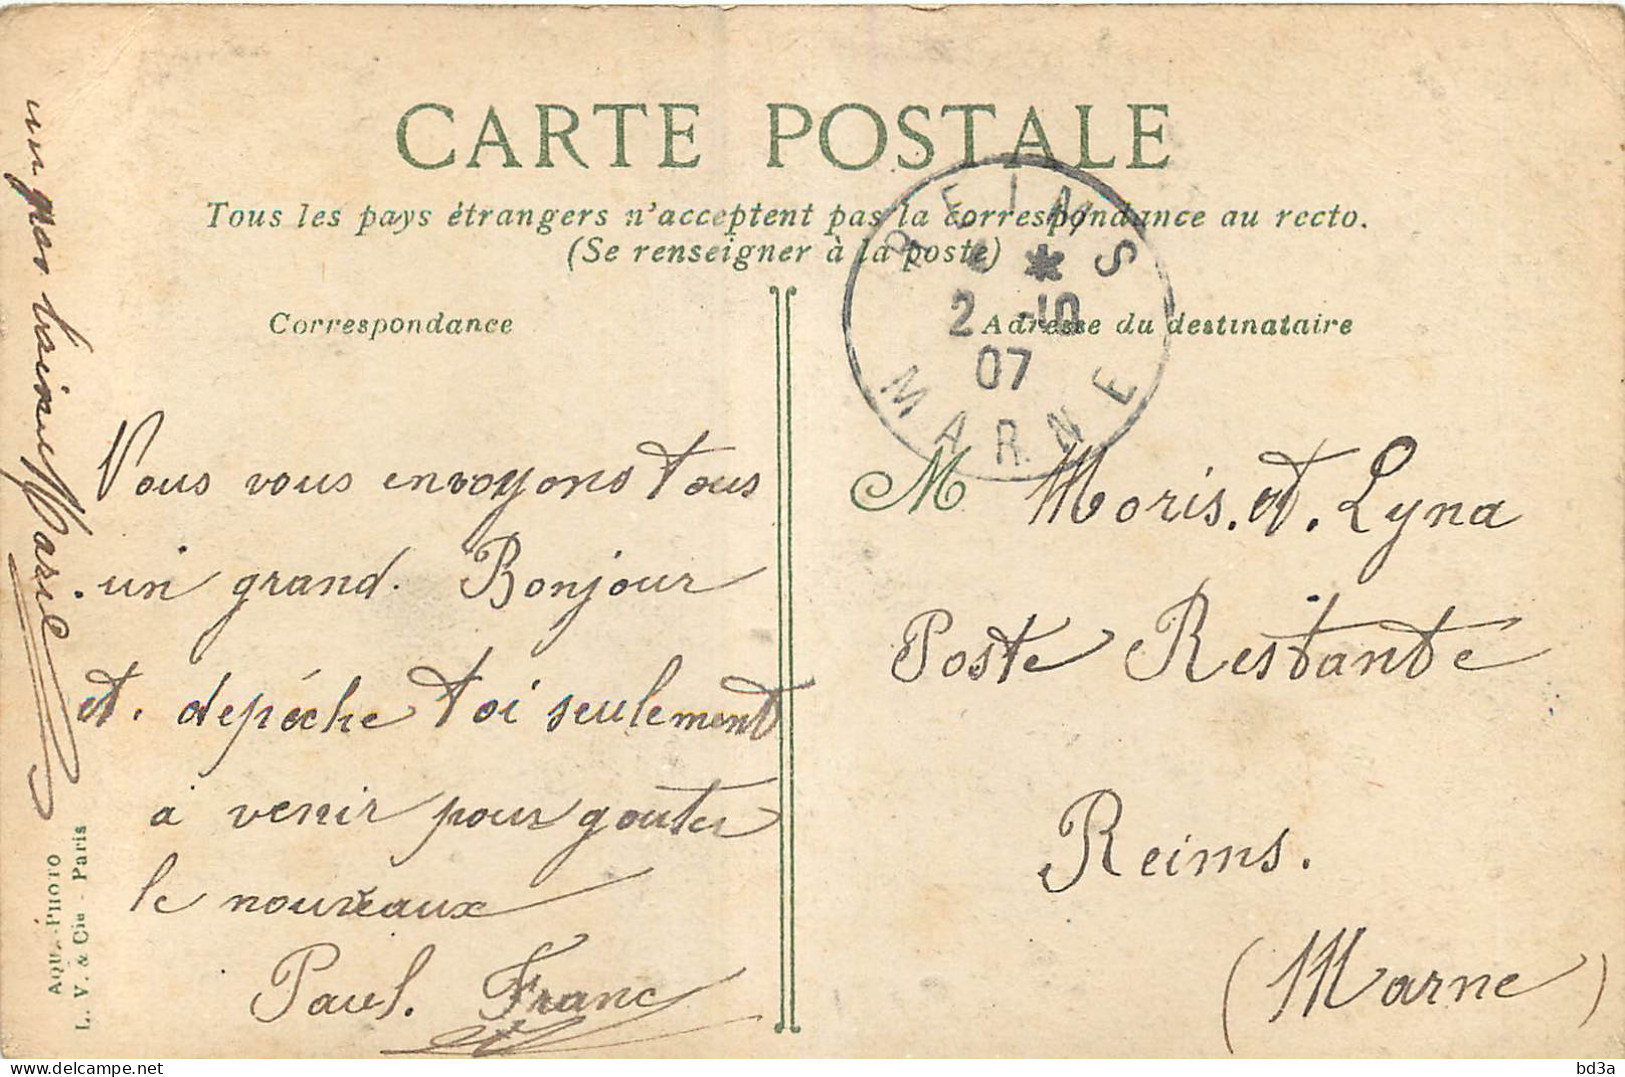 CARTE POSTALE
Tous les pays étrangers n'acceptent pas la correspondance au recto.
(Se renseigner à la poste)
Correspondance
Adresse du destinataire
REIMS
2 -10
07
MARNE
Vous vous envoyons tous
un grand. Bonjour
et. depéche toi seulement
a venir pour gouter
le nouveaux
Paul. Franc
M Moris. et. Lyna
Poste Restante
Reims.
(Marne)
un gros Marie
AQUA-PHOTO
L. V. & Cie - Paris
bd3a